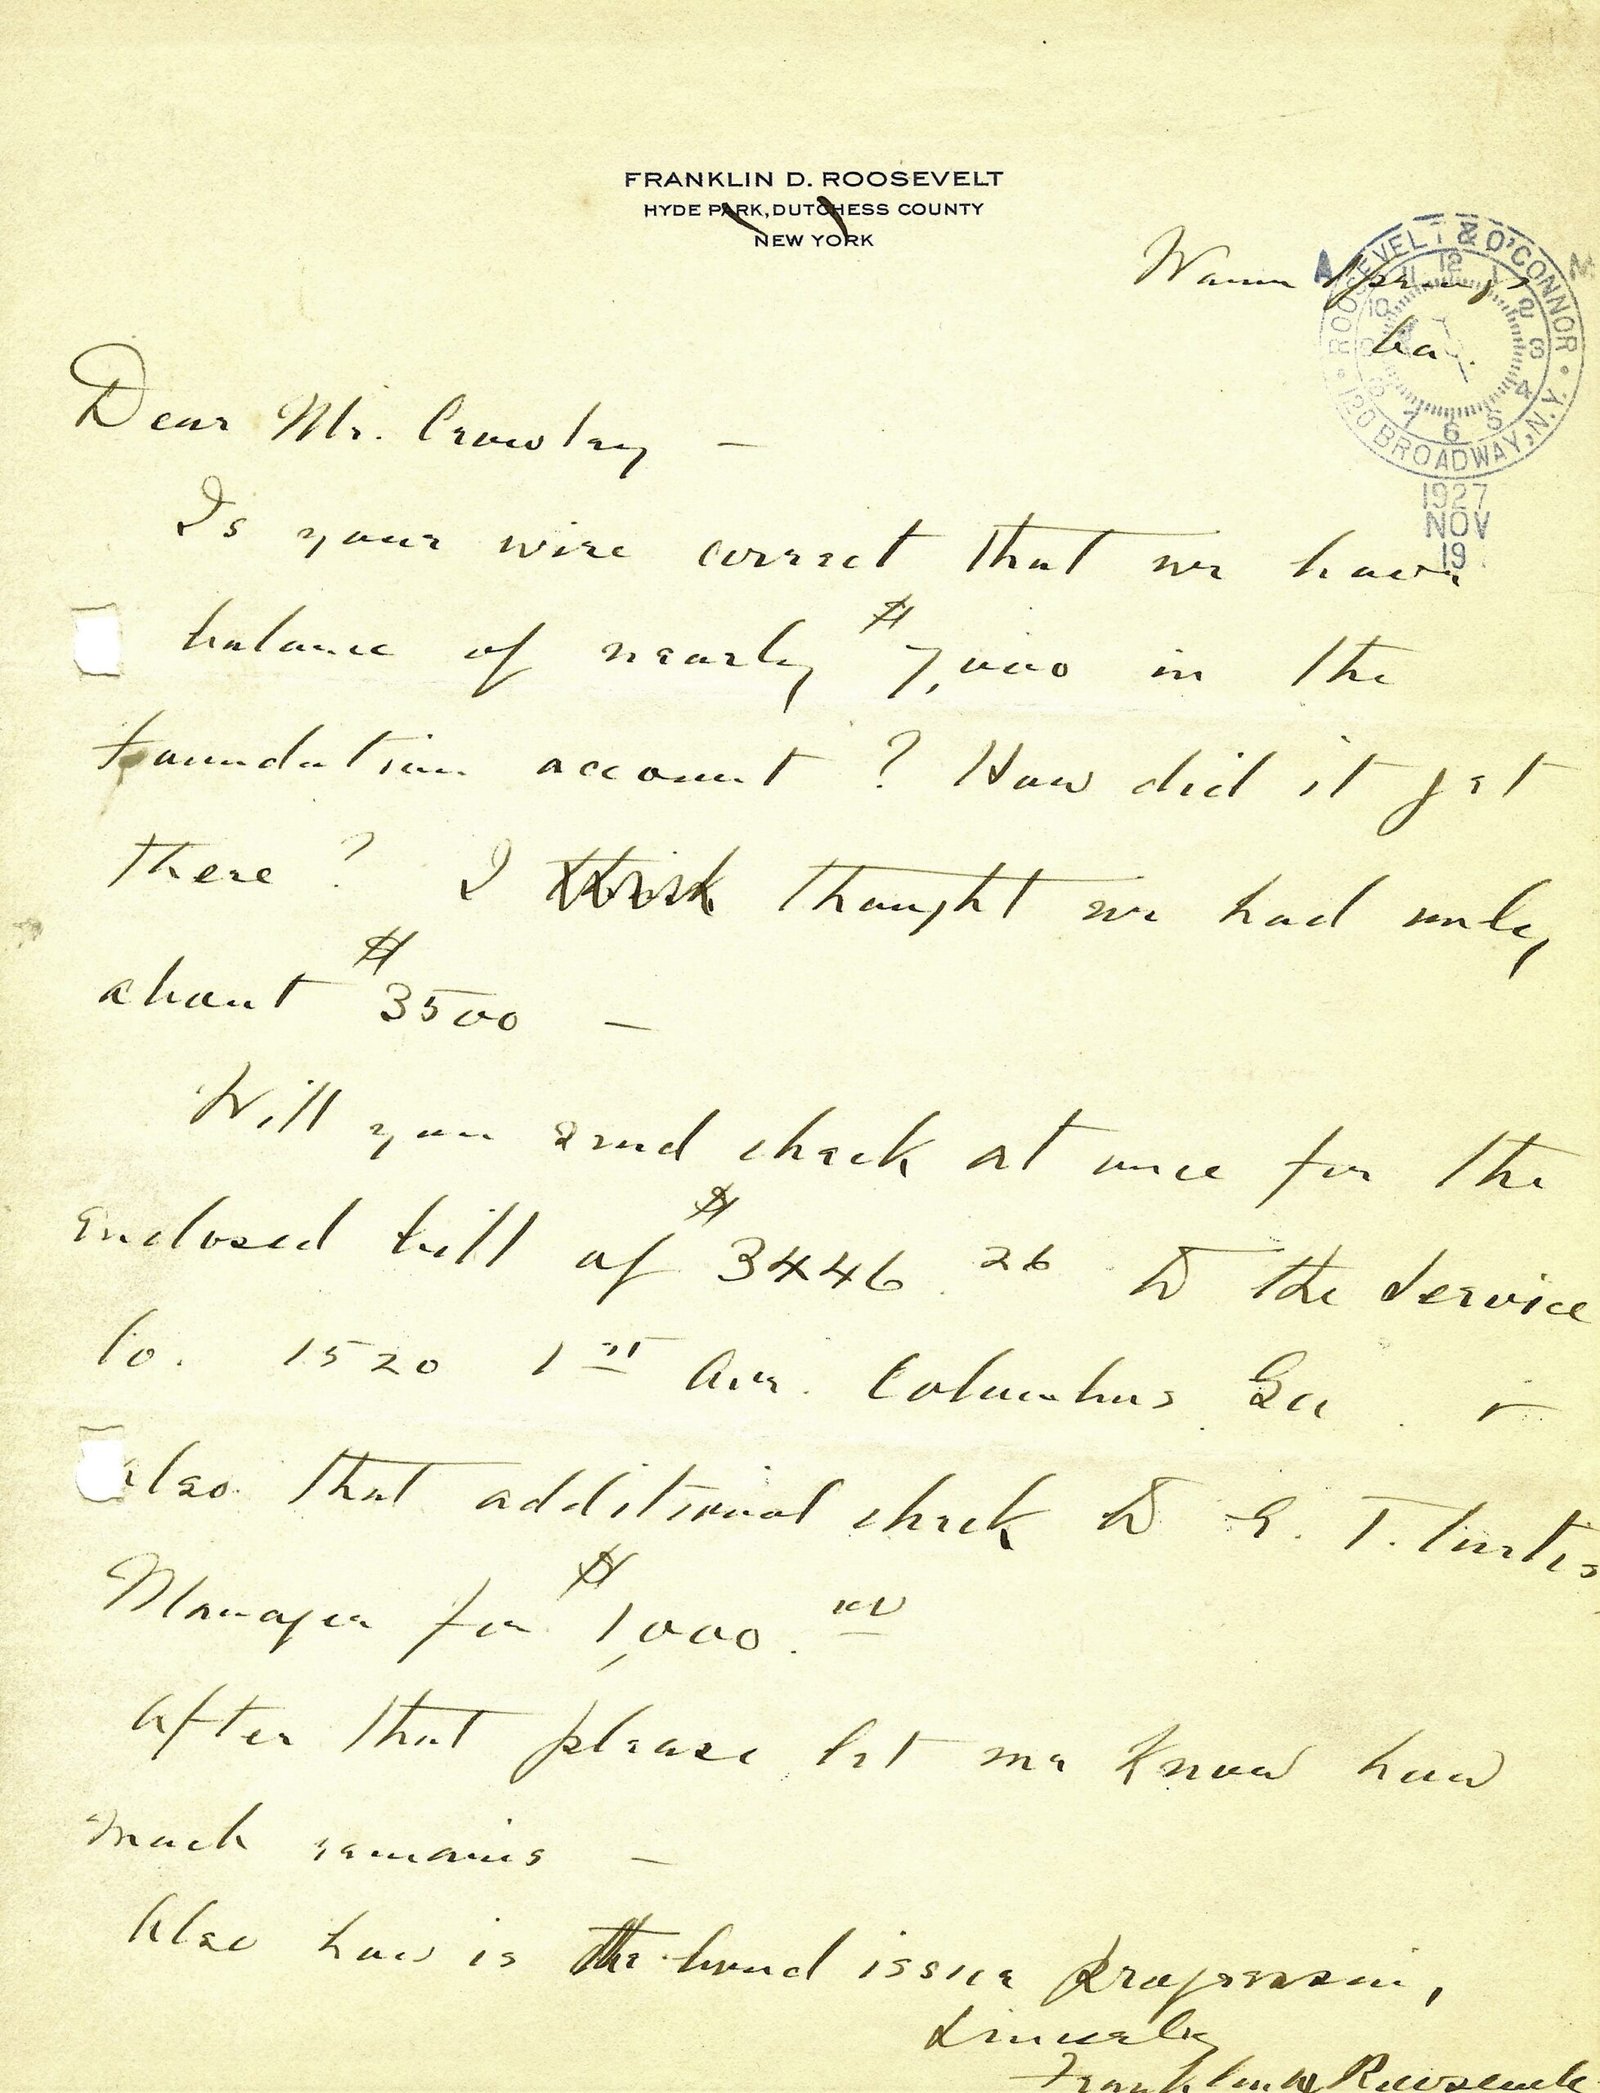 FRANKLIN D. ROOSEVELT
HYDE PARK, DUTCHESS COUNTY
NEW YORK
ROOSEVELT & O'CONNOR
120 BROADWAY, N.Y.
A M
12 1 2 3 4 5 6 7 8 9 10 11
1927
NOV
19
Warm Springs
Ga.
Dear Mr. Crowley –
Is your wire correct that we have
balance of nearly $7,000 in the
Foundation account? How did it get
there? I think thought we had only
about $3500 –
Will you send check at once for the
enclosed bill of $3446.26 to the Service
Co. 1520 1st Ave. Columbus Ga. &
also that additional check to E. T. Curtis
Manager for $1,000.00
After that please let me know how
much remains –
Also how is the bond issue progressing,
Sincerely
Franklin D Roosevelt